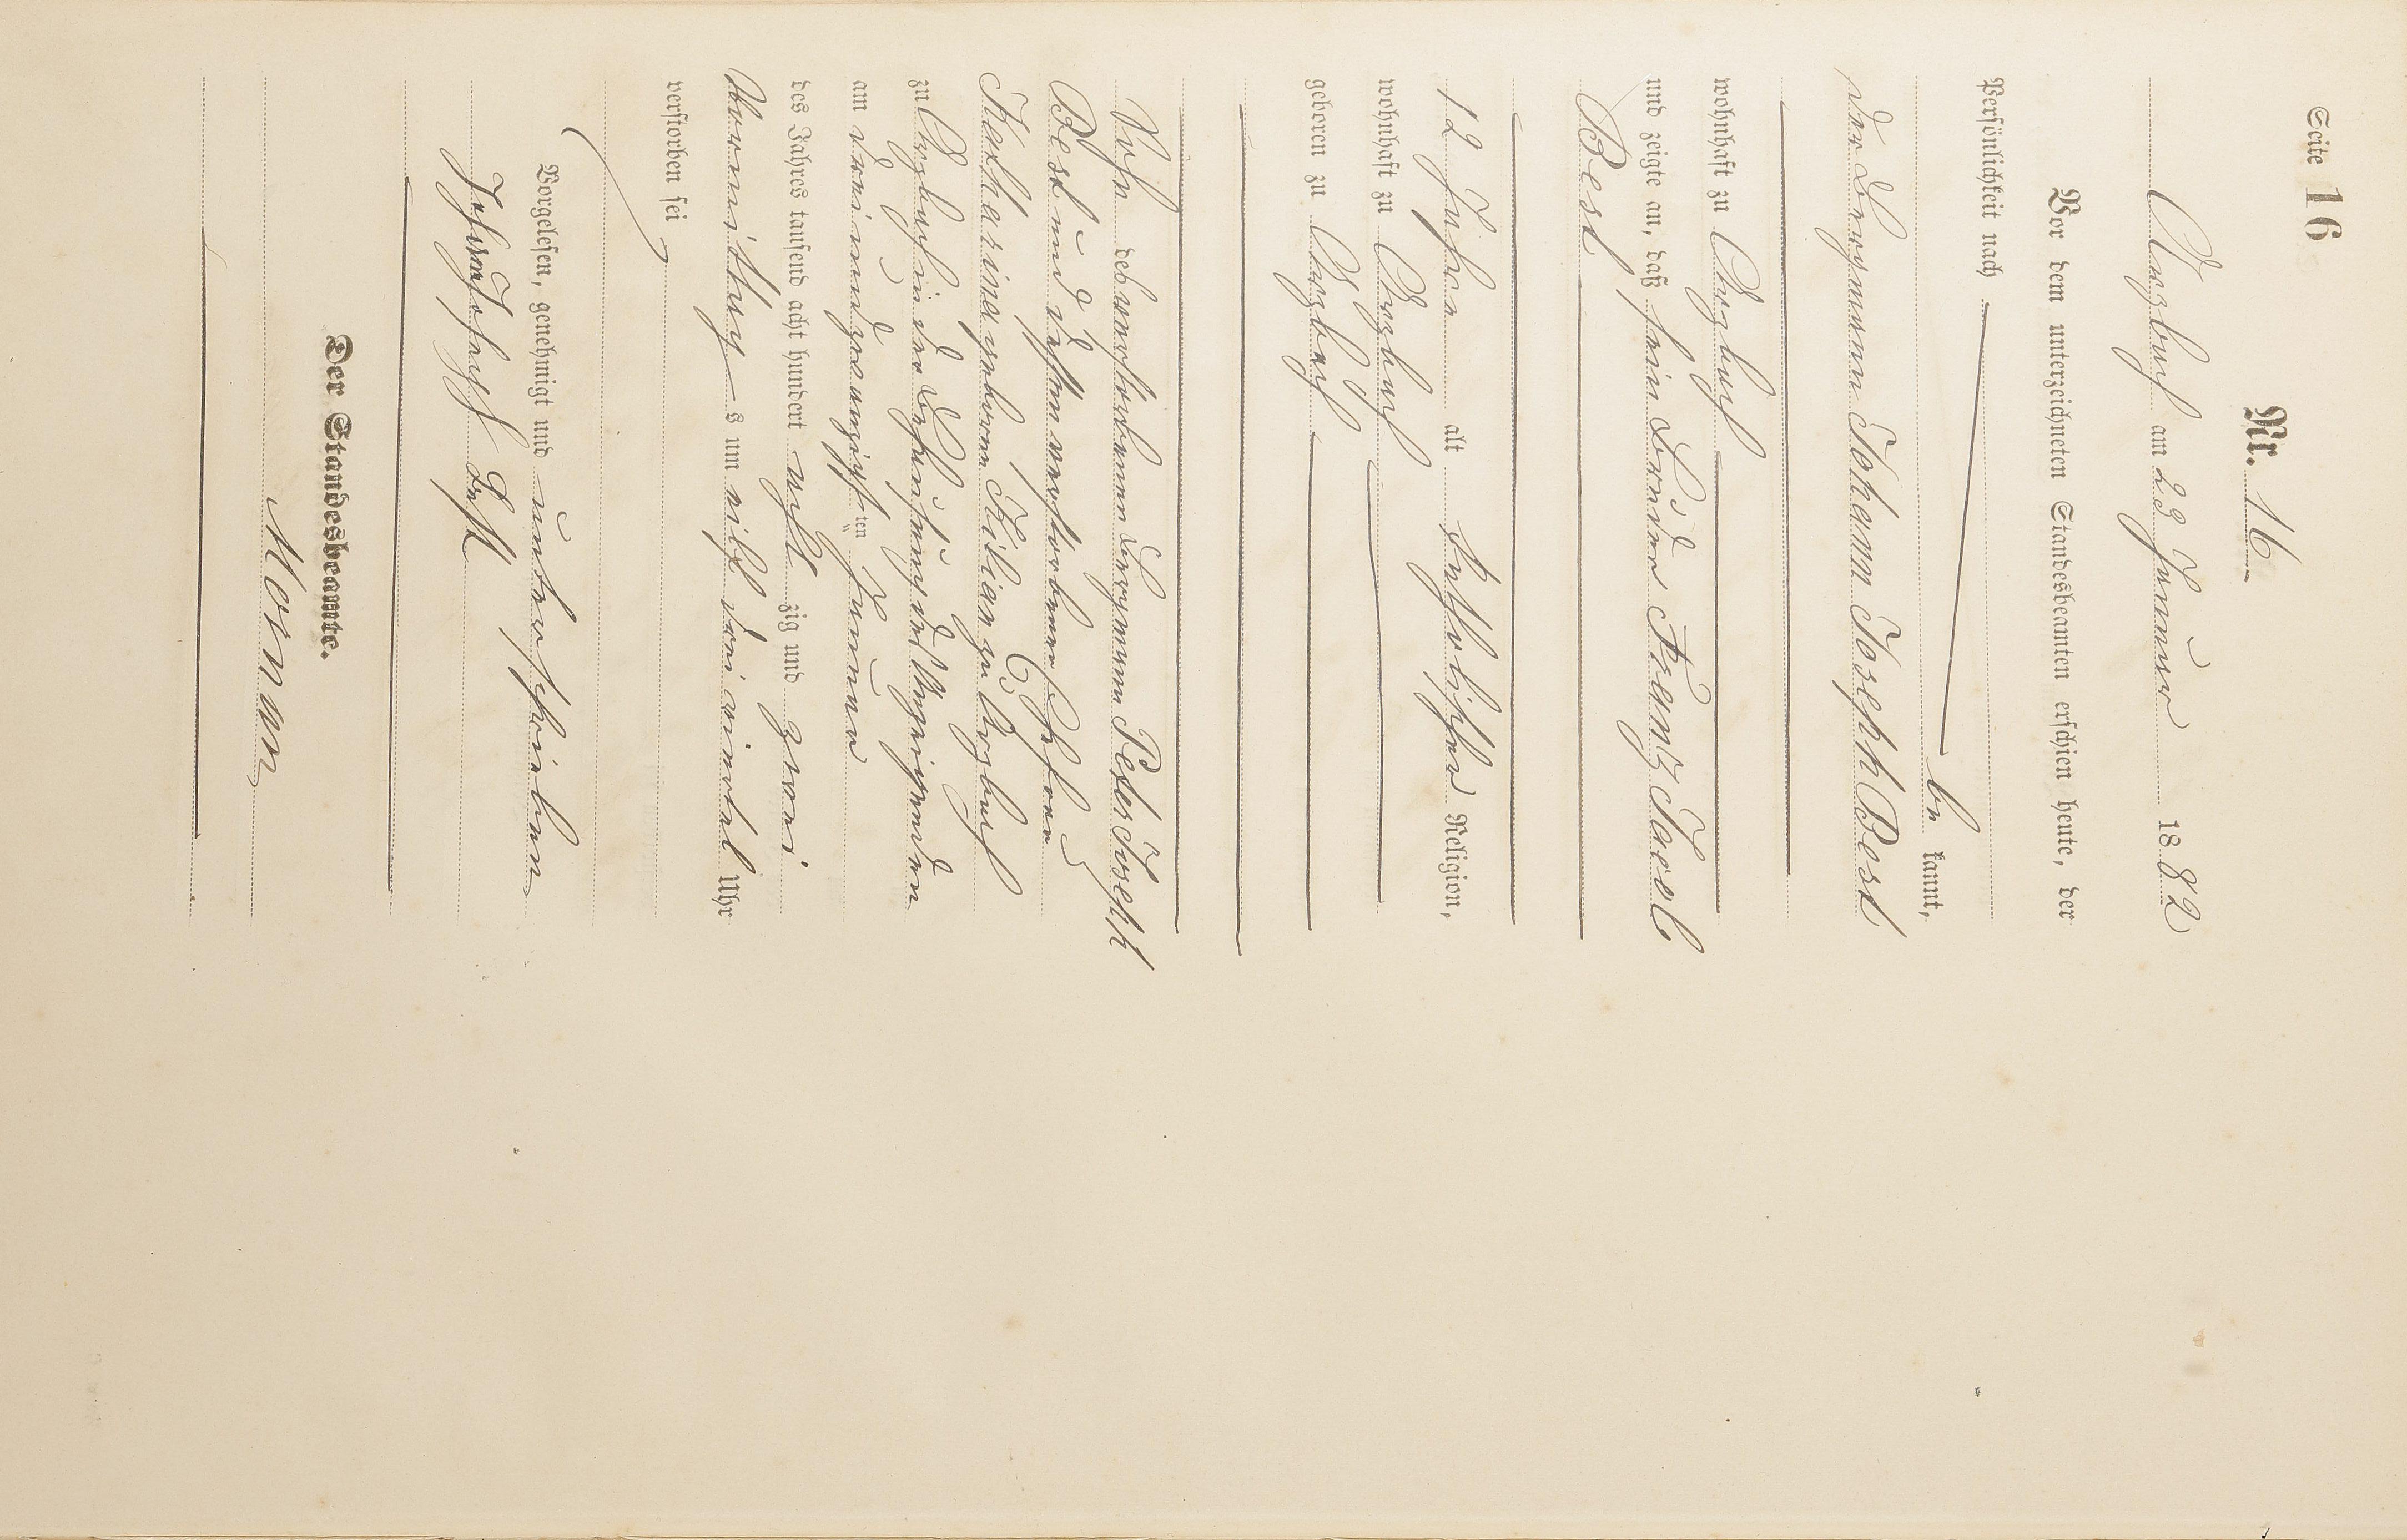 Seite 16
Nr. 16
Arzbach am 23 Januar 1882
Vor dem unterzeichneten Standesbeamten erschien heute, der
Persönlichkeit nach
be kannt,
der Bergmann Johann Joseph Best
wohnhaft zu Arzbach
und zeigte an, daß sein Bruder Frantz Jacob
Best
12 Jahre alt katholischer Religion,
wohnhaft zu Arzbach
geboren zu Arzbach
Sohn des verstorbenen Bergmann Peter Joseph
Best und dessen verstorbenen Ehefrau
Katharina geborene Kilian zu Arzbach
zu Arzbach in der Behausung des Anzeigenden
am drei und zwanzigsten Januar
des Jahres tausend acht hundert acht zig und zwei
Vormittags um elf drei viertel Uhr
verstorben sei
Vorgelesen, genehmigt und unterschrieben
Johann Joseph Best
Der Standesbeamte.